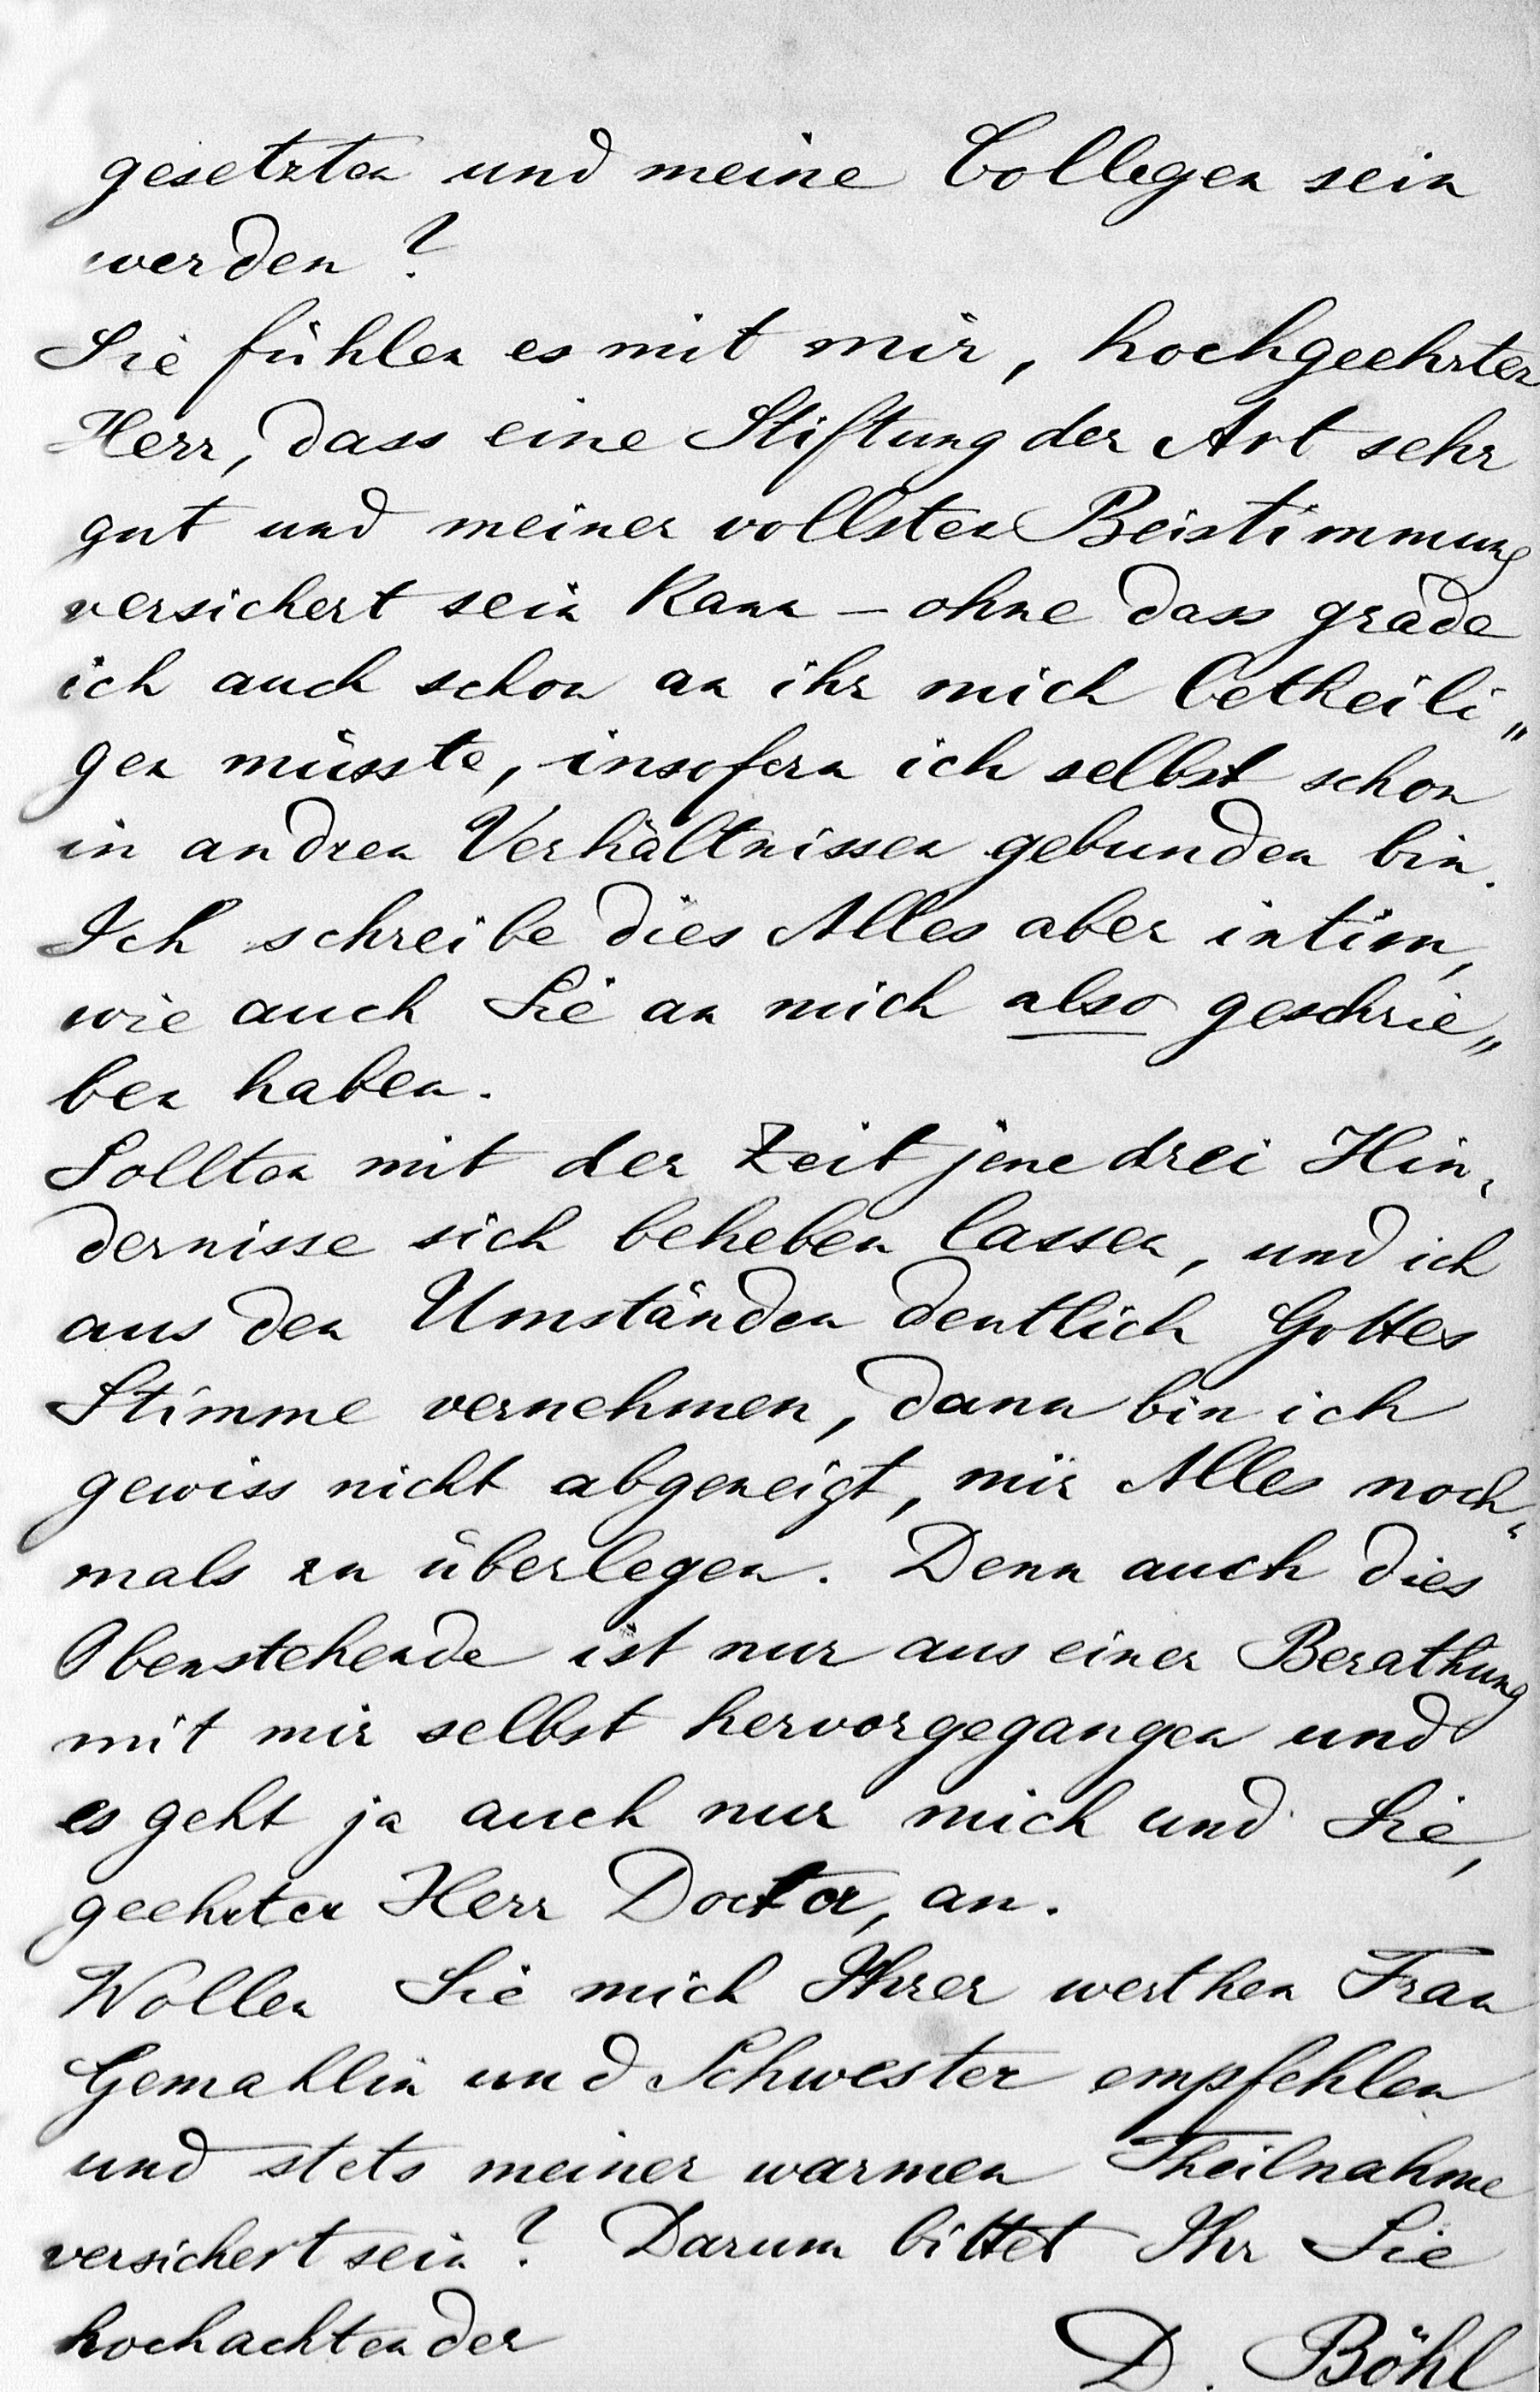 gesetzten und meine Collegen sein
werden?
Sie fühlen es mit mir, hochgeehrter
Herr, dass eine Stiftung der Art sehr
gut und meiner vollsten Beistimmung
versichert sein kann – ohne dass grade
ich auch schon an ihr mich betheili„
gen müsste, insofern ich selbst schon
in andren Verhältnissen gebunden bin.
Ich schreibe dies Alles aber intim,
wie auch Sie an mich also geschrie„
ben haben.
Sollten mit der Zeit jene drei Hin„
dernisse sich beheben lassen, und ich
aus den Umständen deutlich Gottes
Stimme vernehmen, dann bin ich
gewiss nicht abgeneigt, mir Alles noch„
mals zu überlegen. Denn auch dies
Obenstehende ist nur aus einer Berathung
mit mir selbst hervorgegangen und
es geht ja auch nur mich und Sie,
geehrter Herr Doctor, an.
Wollen Sie mich Ihrer werthen Frau
Gemahlin und Schwester empfehlen
und stets meiner warmen Theilnahme
versichert sein? Darum bittet Ihr Sie
hochachtender
D. Böhl